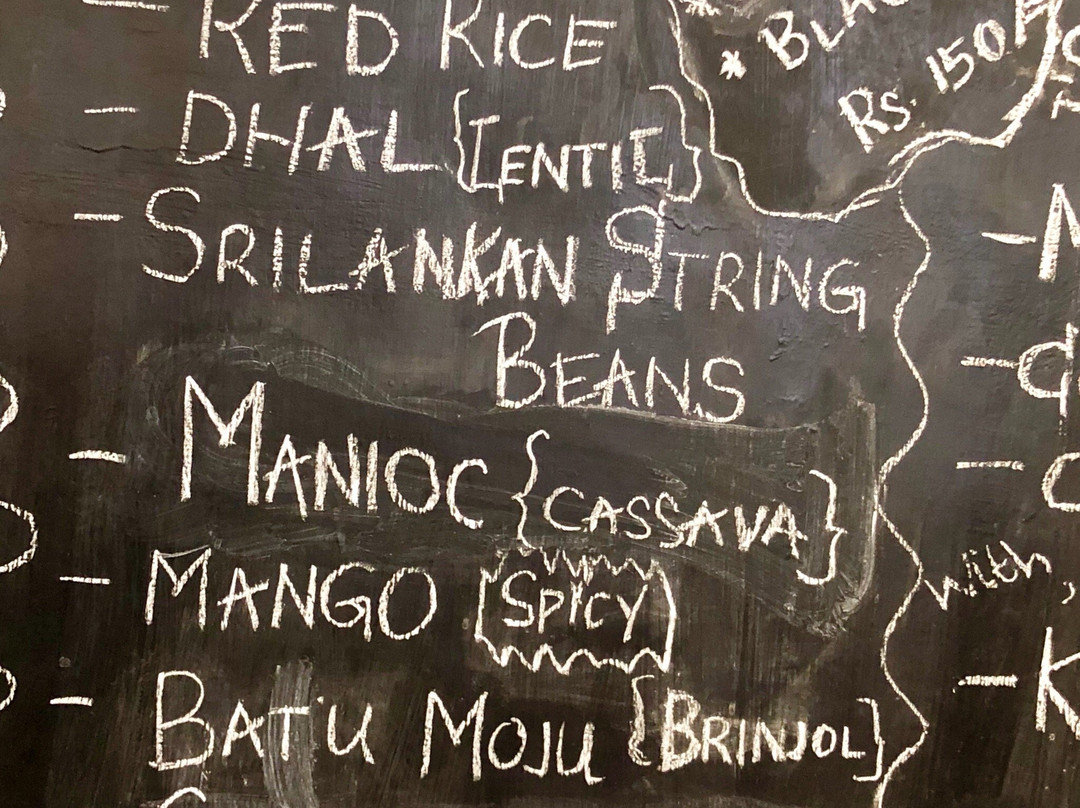 - RED RICE
- DHAL {LENTIL}
- SRILANKAN STRING
BEANS
- MANIOC {CASSAVA}
- MANGO [SPICY]
- BATU MOJU {BRINJOL}
Rs. 150
with